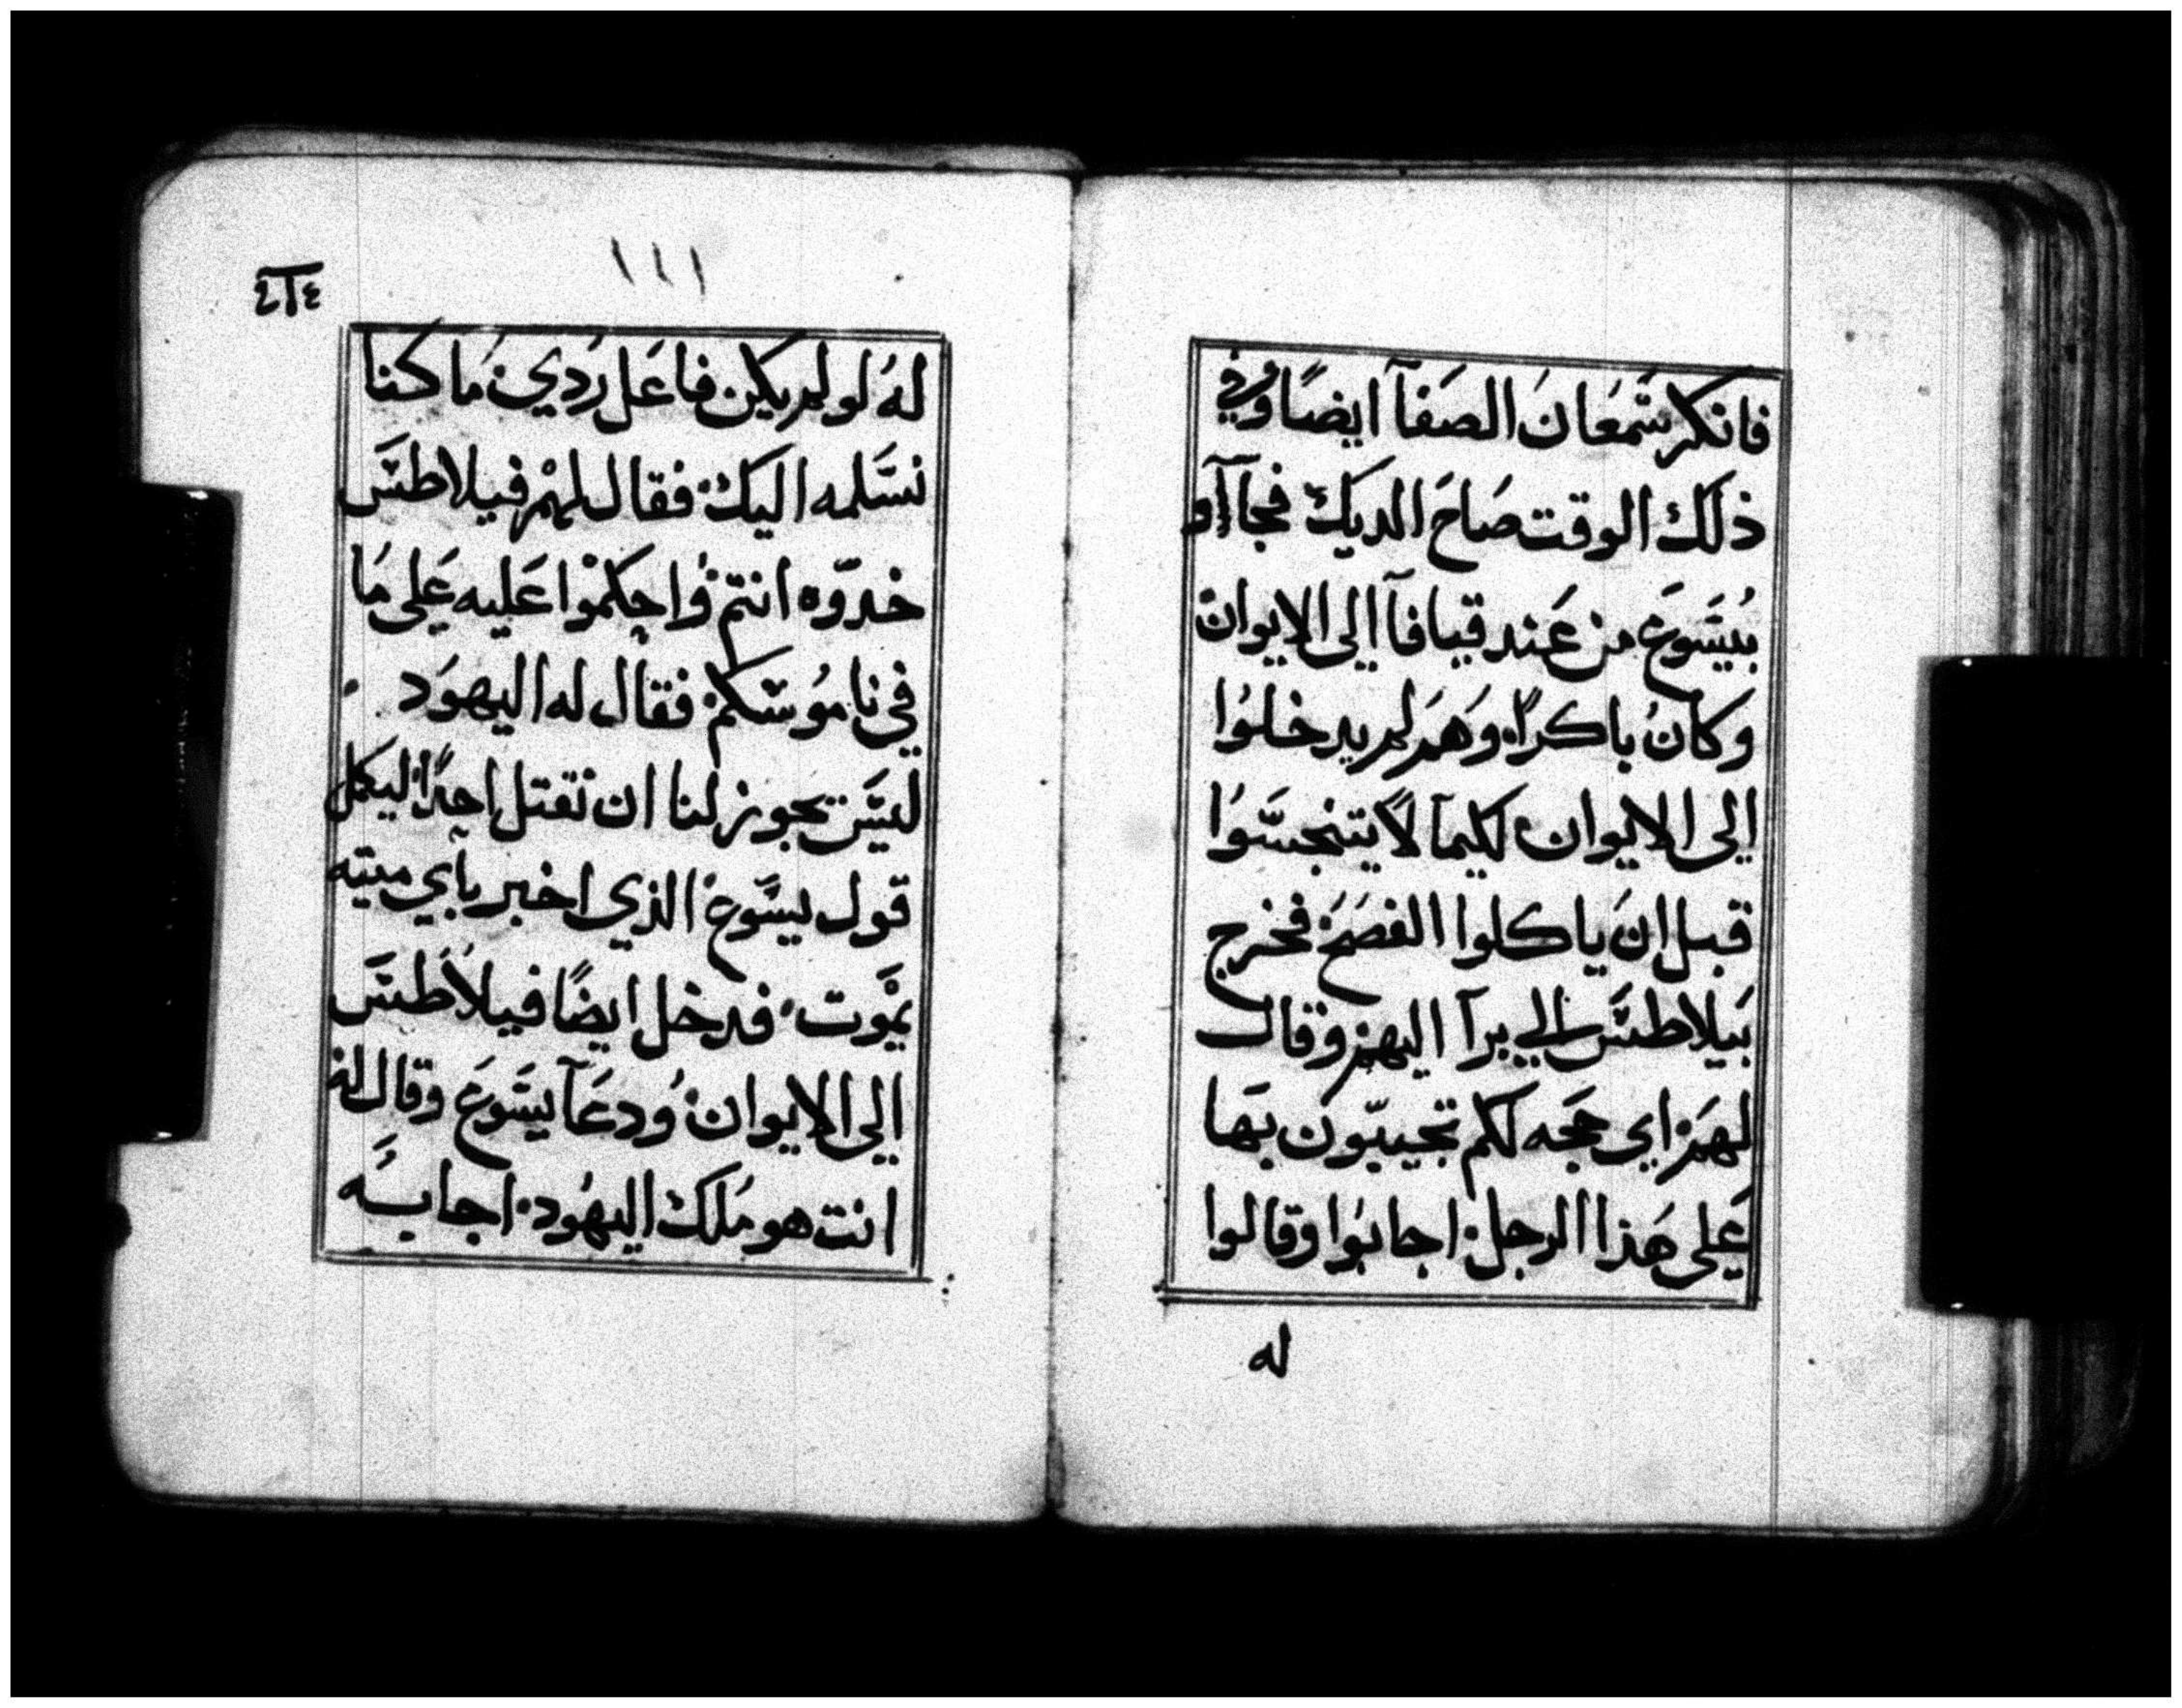 فانكر شمعان الصفآ ايضًا وفي
ذلك الوقت صَاحَ الديك فجآآو
بيسَوع من عَند قيافآ الي الايوان
وكان باكرًا وَهَم لم يدخلوُا
الي الايوان لكيمآ لا يتنجسّوُا
قبل ان ياكلوا الفصَح فخرج
بَيلاطسَ الي برآ اليهم وقال
لهَم اي حجه لكم تجيبّون بَها
عَلي هَذا الرجل اجابوا وقالوا
له
١١١
لهُ لو لم يكن فاعَل رَدي مَا كنا
نسَّلمه اليك فقال لهمْ فيلاطسَ
خدوّه انتم وُاحكموْا عَليه عَلي مَا
في نامُوسَكم فقال له اليهوَد
ليسَ يجوز لنا ان نقتل احدًا ليكمل
قول يسَّوع الذي اخبر بآي ميته
يموْت فدخل ايضًا فيلاطسَ
الي الايوان وُدعَآ يسَوعَ وقال لهُ
انت هو مَلك اليهُود اجابَه